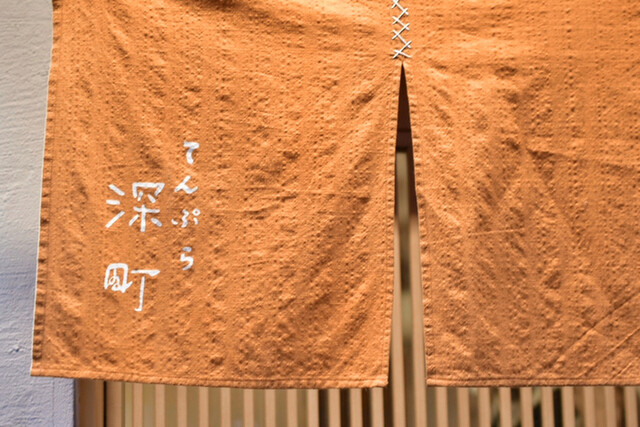 てんぷら
深町